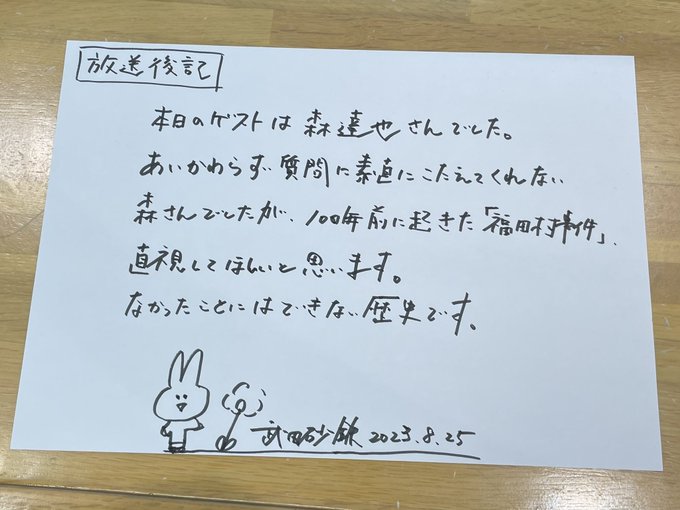 放送後記
本日のゲストは森達也さんでした。
あいかわらず質問に素直にこたえてくれない
森さんでしたが、100年前に起きた「福田村事件」、
直視してほしいと思います。
なかったことにはできない歴史です。
武田砂鉄 2023.8.25